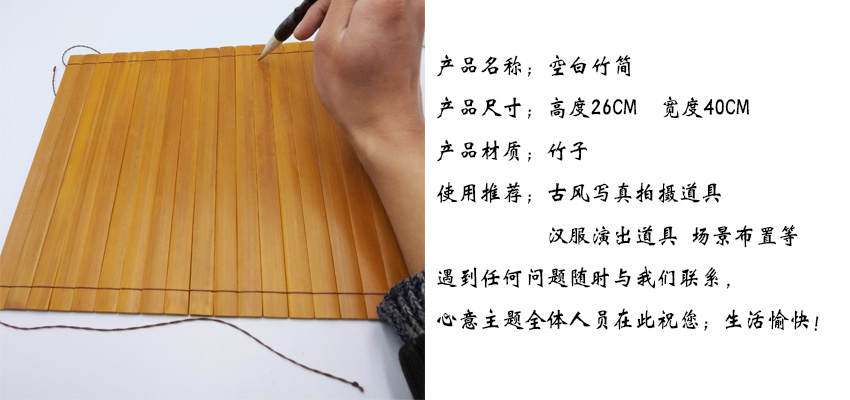 产品名称；空白竹简
产品尺寸；高度26CM 宽度40CM
产品材质；竹子
使用推荐；古风写真拍摄道具
汉服演出道具 场景布置等
遇到任何问题随时与我们联系，
心意主题全体人员在此祝您；生活愉快！